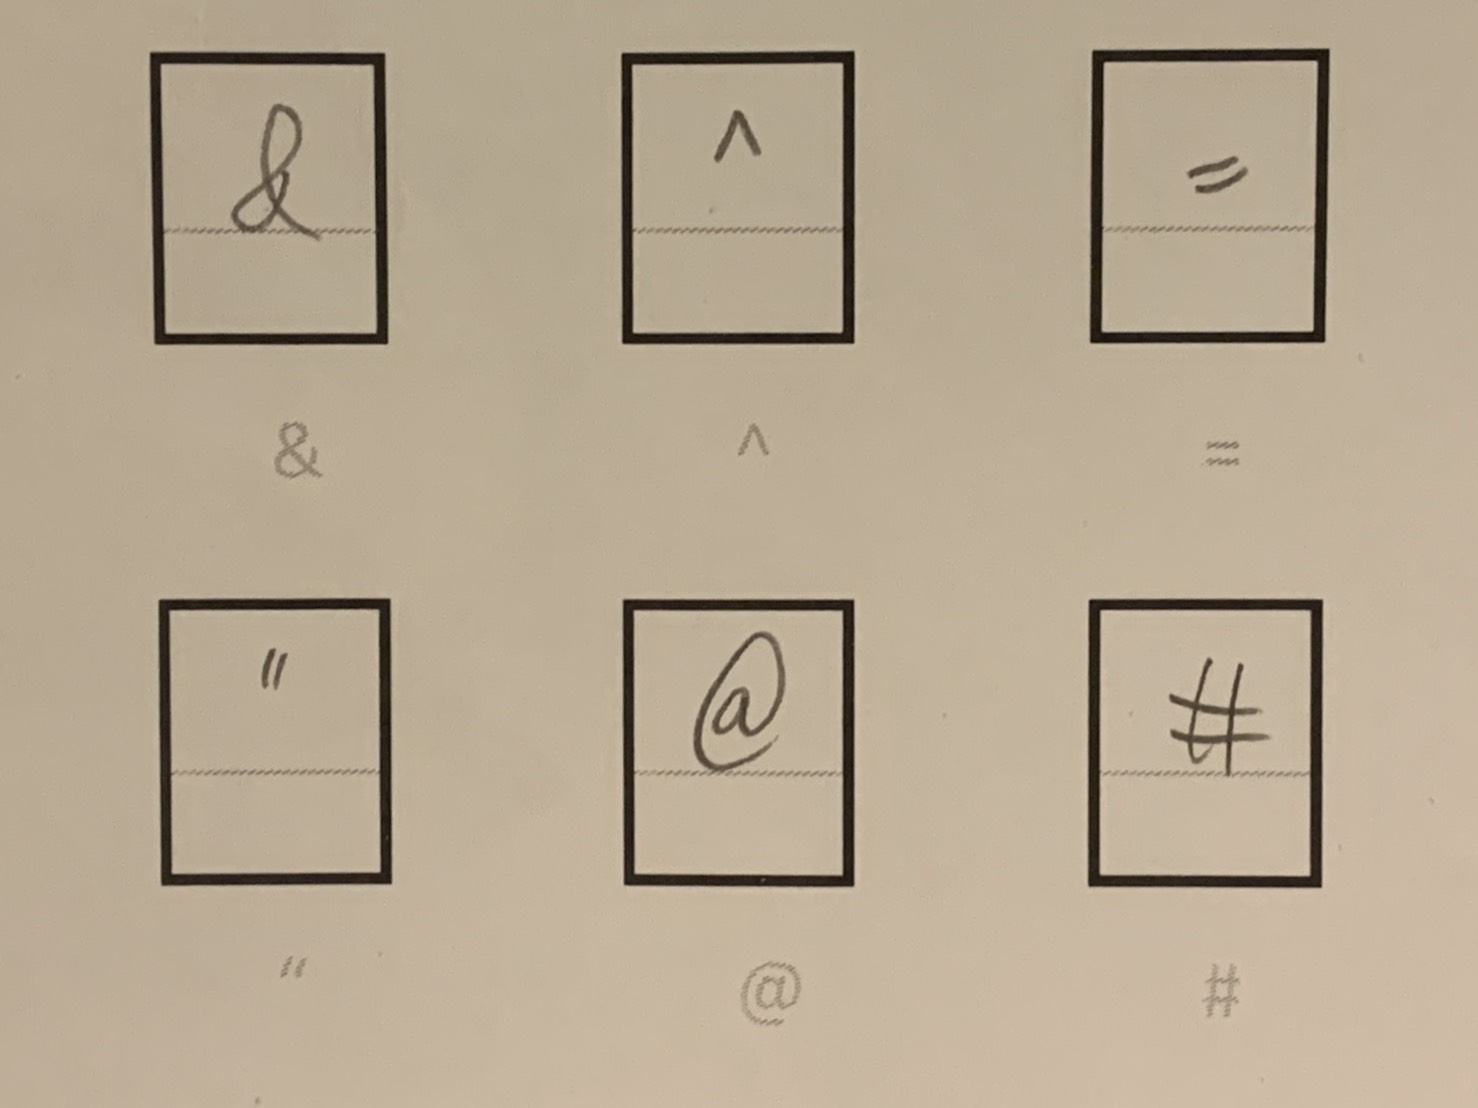 & ^ =
& ^ =
" @ #
" @ #